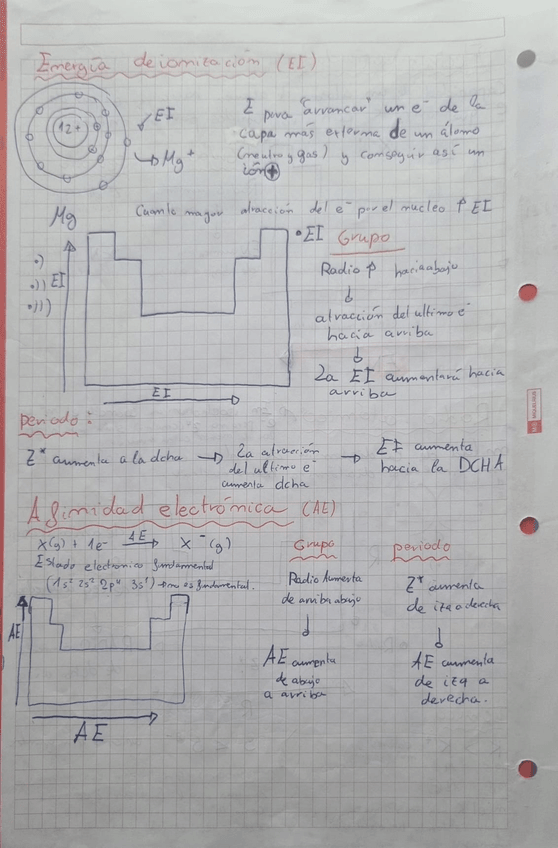 Energía de ionización (EI)
E para "arrancar" un e⁻ de la
capa más externa de un átomo
(neutro y gas) y conseguir así un
ión +
12+
EI
Mg⁺
Mg
Cuanto mayor atracción del e⁻ por el nucleo ↑ EI
•)
•))
•)))
EI
EI
• EI Grupo
Radio ↑ hacia abajo
↓
atracción del ultimo e⁻
hacia arriba
↓
La EI aumentará hacia
arriba
periodo:
Z* aumenta a la dcha → La atracción
del ultimo e⁻
aumenta dcha
→ EI aumenta
hacia la DCHA
Afinidad electrónica (AE)
X(g) + 1e⁻ AE→ X⁻(g)
Estado electronico fundamental
(1s² 2s² 2p⁴ 3s¹) → no es fundamental.
AE
AE
Grupo
Radio Aumenta
de arriba abajo
↓
AE aumenta
de abajo
a arriba
periodo
Z* aumenta
de izq a derecha
↓
AE aumenta
de izq a
derecha.